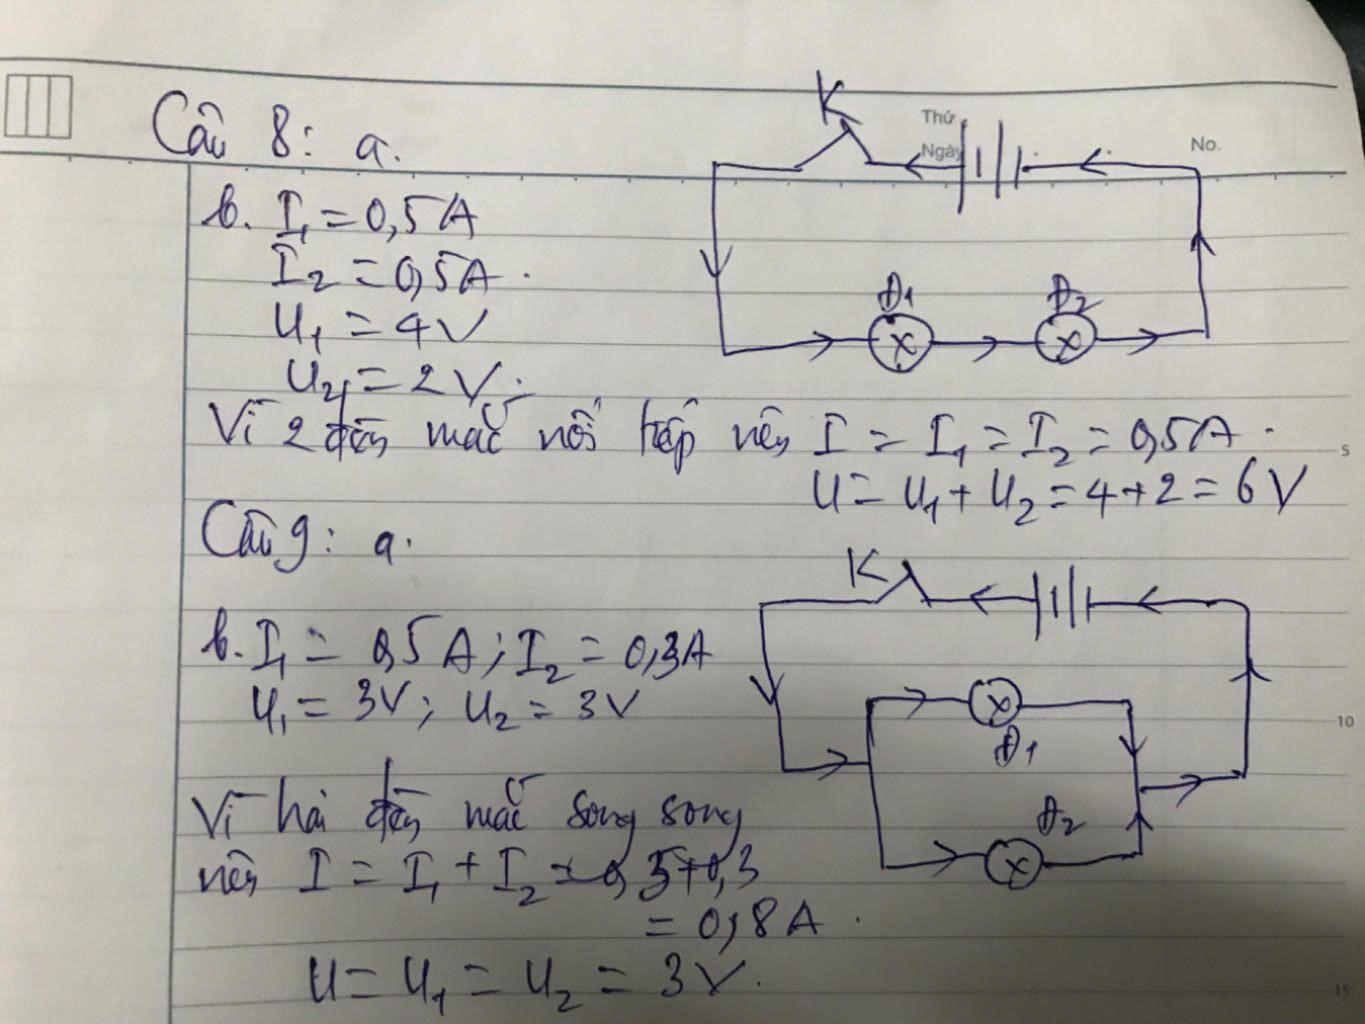 Thứ
Ngày
No.
Câu 8: a.
K
Đ1
Đ2
b. I1 = 0,5A
I2 = 0,5A.
U1 = 4V
U2 = 2V.
Vì 2 đèn mắc nối tiếp nên I = I1 = I2 = 0,5A.
5
U = U1 + U2 = 4 + 2 = 6V
Câu 9: a.
K
Đ1
Đ2
b. I1 = 0,5A; I2 = 0,3A
U1 = 3V; U2 = 3V
10
Vì hai đèn mắc song song
nên I = I1 + I2 = 0,5 + 0,3
= 0,8A.
U = U1 = U2 = 3V.
15